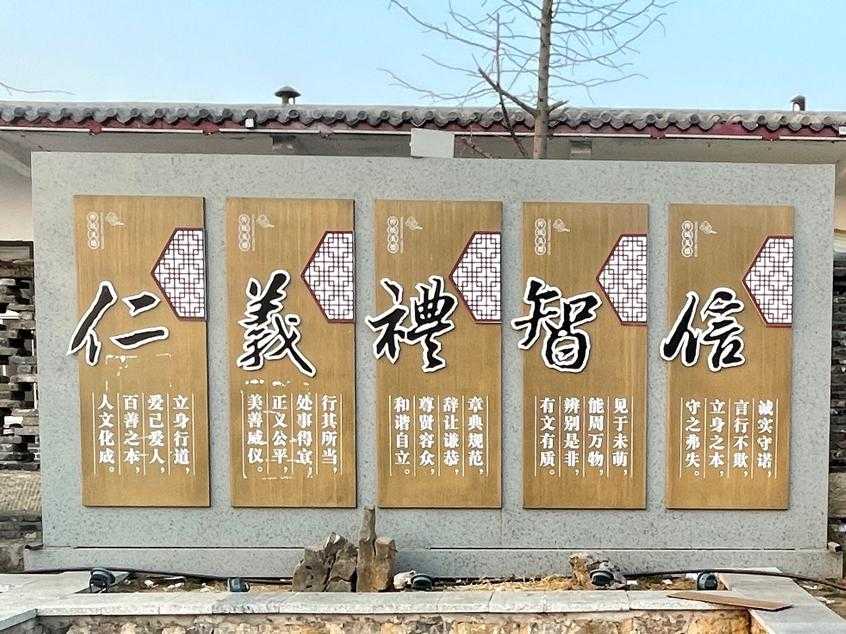 传统美德
仁
立身行道，
爱己爱人，
百善之本，
人文化成。
传统美德
義
行其所当，
处事得宜，
正义公平，
美善威仪。
传统美德
禮
章典规范，
辞让谦恭，
尊贤容众，
和谐自立。
传统美德
智
见于未萌，
能周万物，
辨别是非，
有文有质。
传统美德
信
诚实守诺，
言行不欺，
立身之本，
守之弗失。